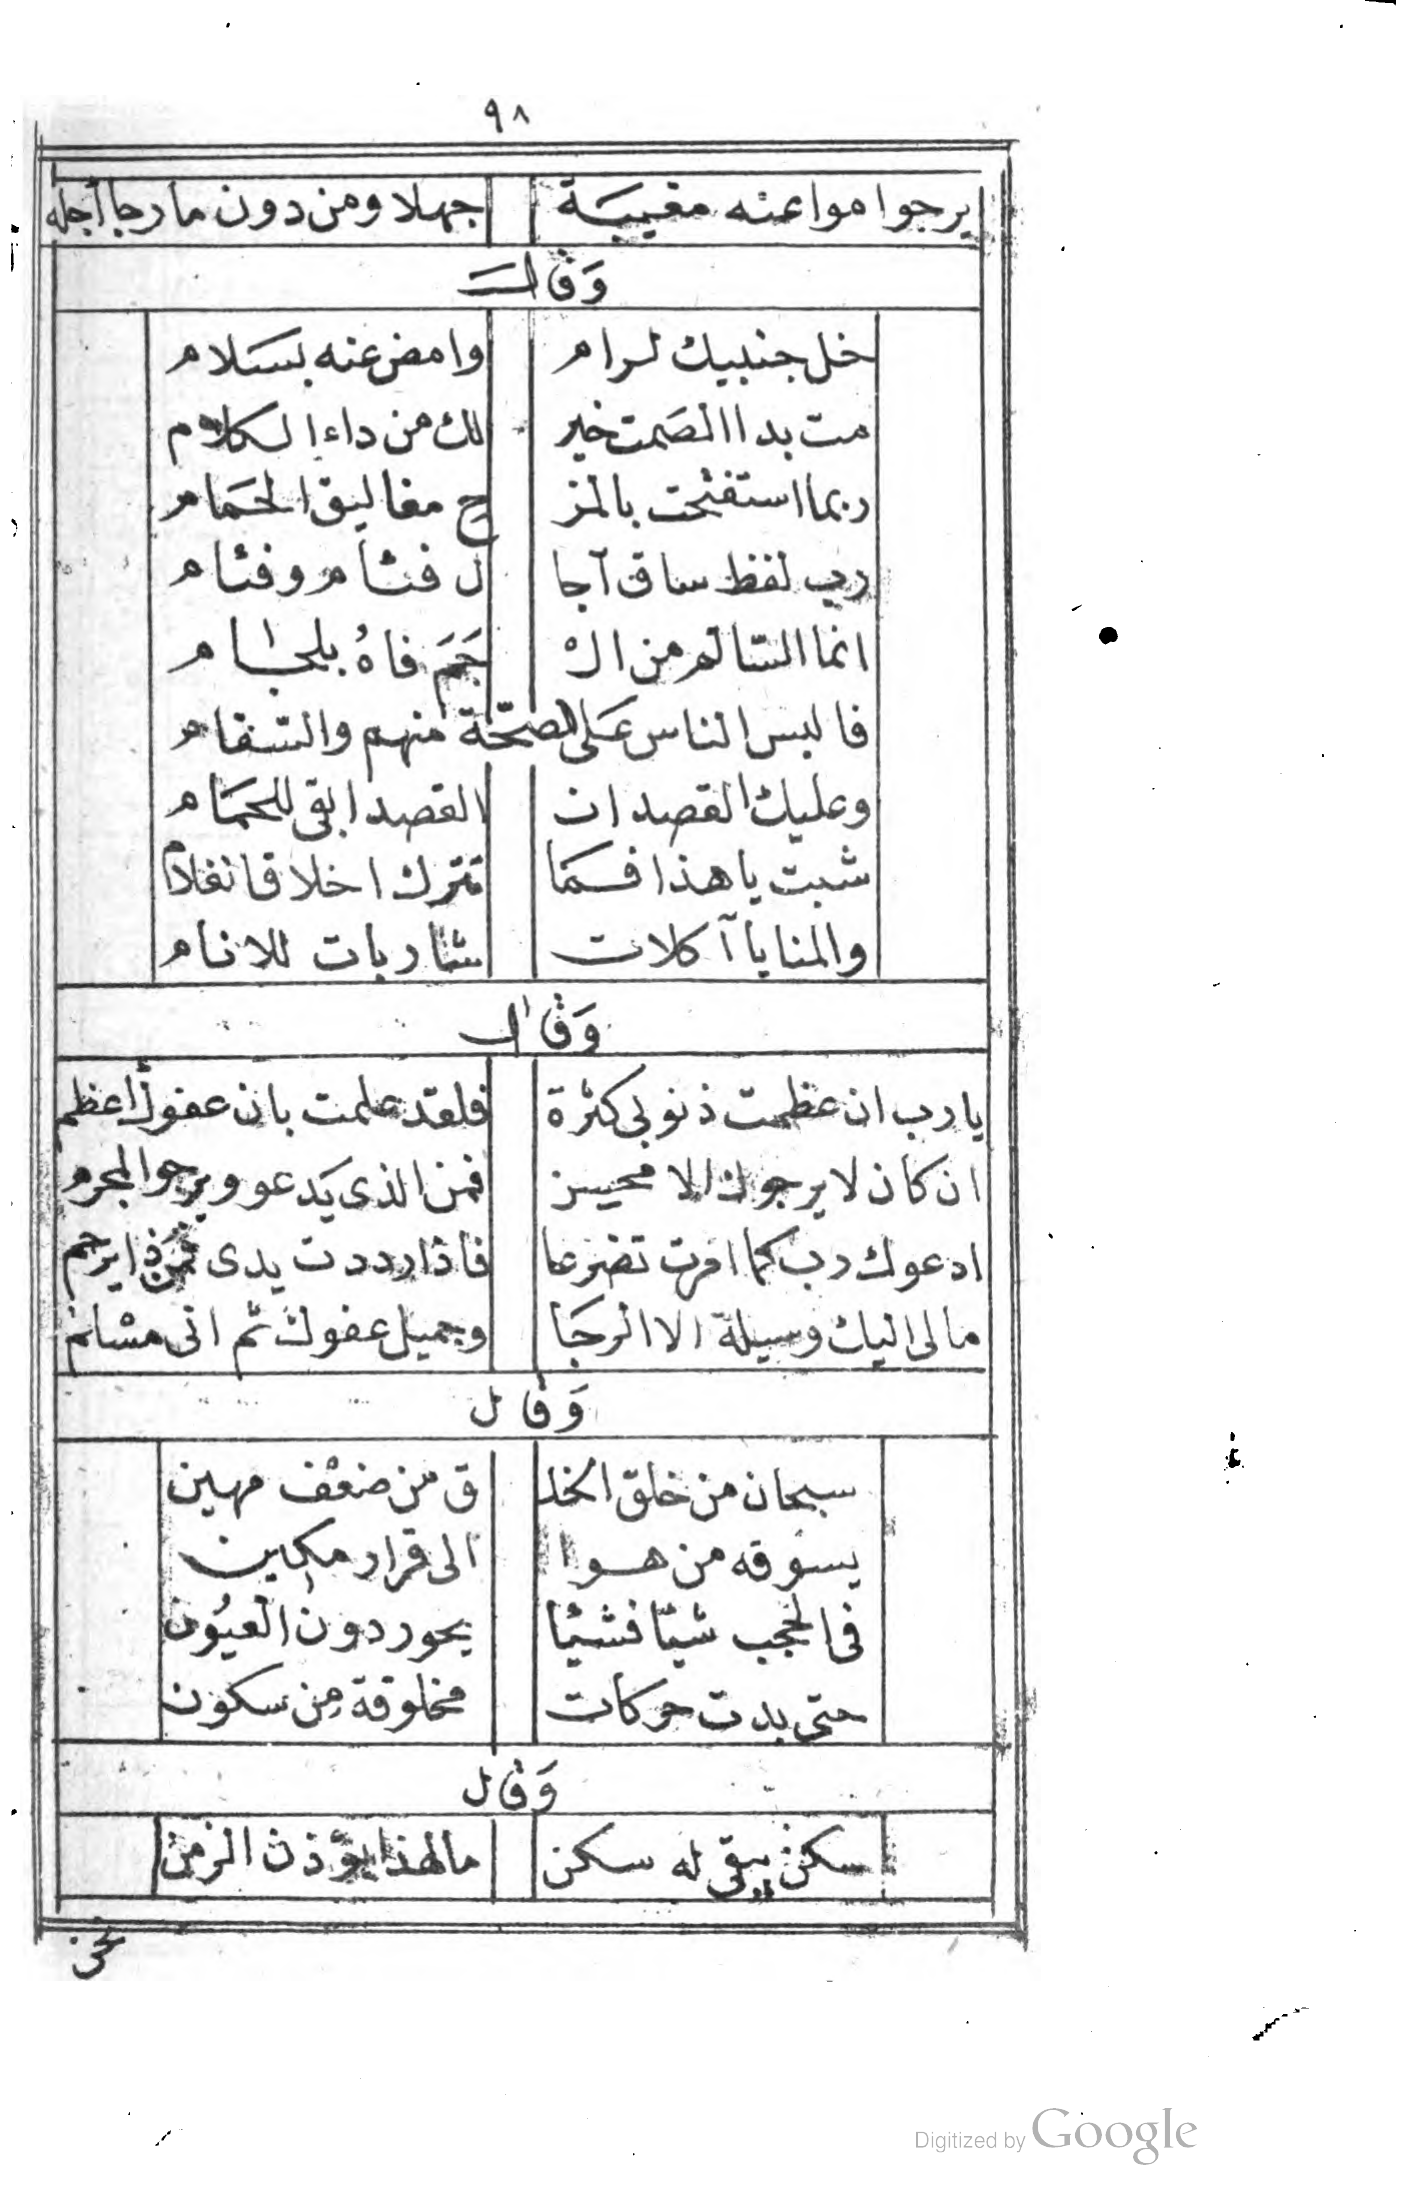 ٩٨
يرجوا مواعنه مغيبة جهلا ومن دون ما رجا أجله
وَقال
خل جنبيك لرام وامض عنه بسَلام
مت بداالصَمت خير لك من داء الكلام
ربما استفتحت بالمز ح مغاليق الحَمام
رب لفظ ساق آجا ل فئام وفئام
انما السّالم من الْ جَمَ فاهُ بلجام
فالبس الناس عَلى الصحّة منهم والسّقام
وعليك القصد ان القصد ابقى للحمَام
شبت يا هذا فمَا تترك اخلاقا نغلام
والمنايا آكلات شاربات للانام
وَقال
يا رب ان عظمت ذنوبى كثرة فلقد علمت بان عفوك أعظم
ان كان لا يرجوك الا محسن فمن الذى يَدعو ويرجوا لمجرم
ادعوك رب كما امرت تضرعا فاذا رددت يدى فمن ذا يرحم
مالى اليك وسيلة الا الرجَا وجميل عفوك ثم انى مسلم
وَقال
سبحان من خلق الخلـ ق من ضعْف مهين
يسوقه من هوا الى قرار مكين
فى الحجب شيئا فشيئا يحور دون العيُون
حتى بدت حركات مخلوقة مِن سكون
وَقال
سكن يبقى له سكن ما لهذا يؤذن الزمن
نحن
Digitized by Google